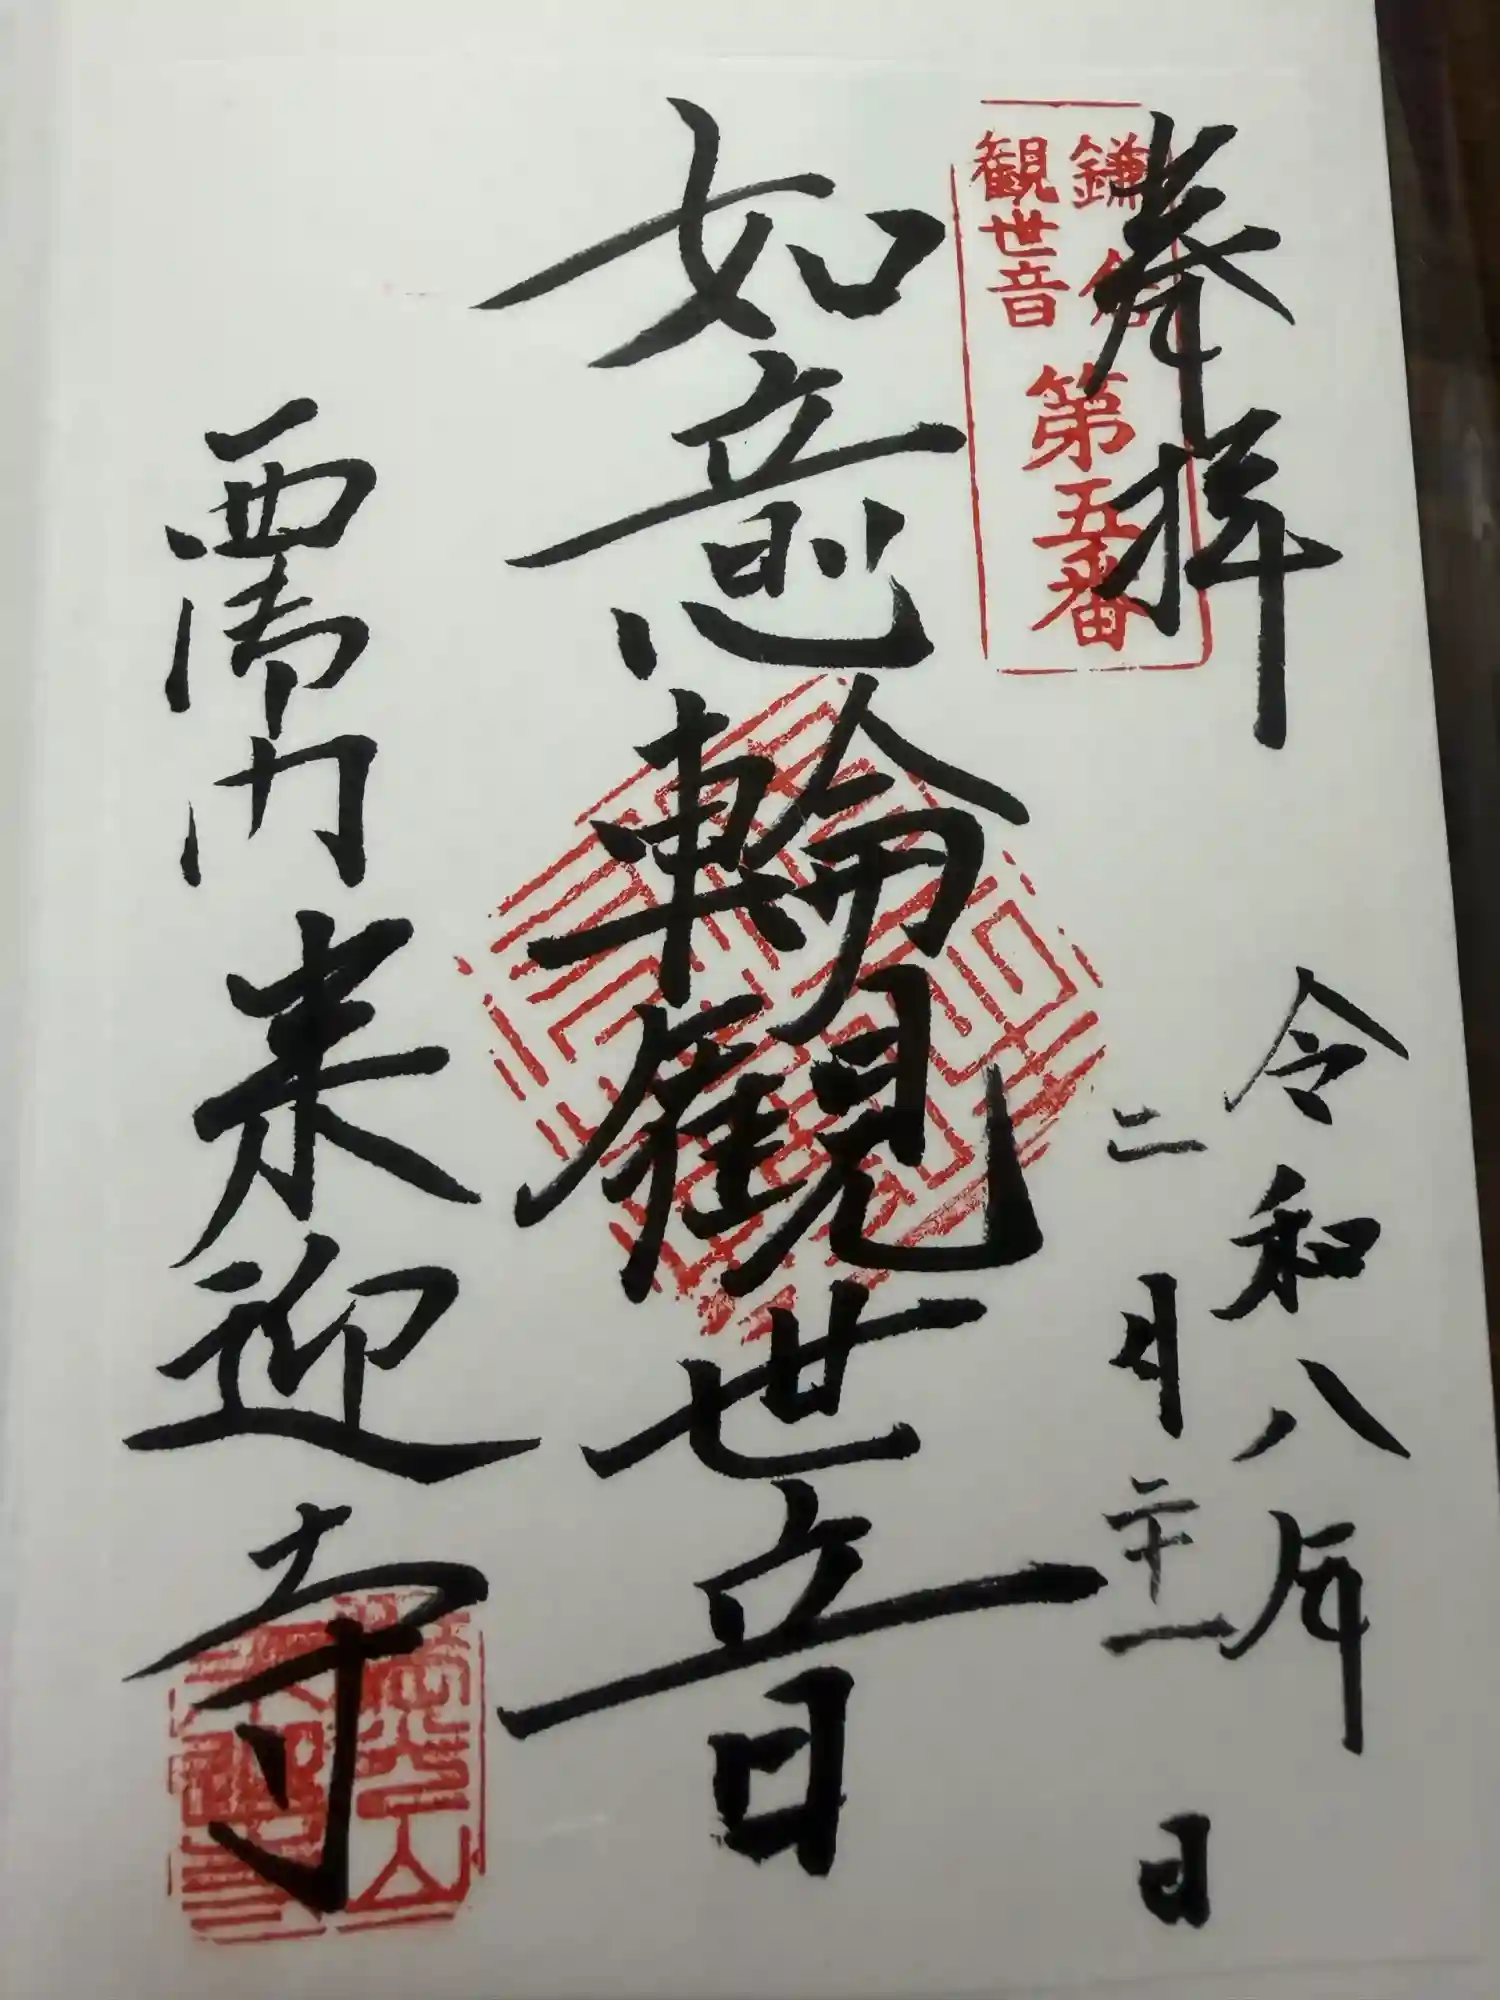 奉拝
鎌倉
観世音
第五番
令和八年
二月二十一日
如意輪観世音
西御門
来迎寺